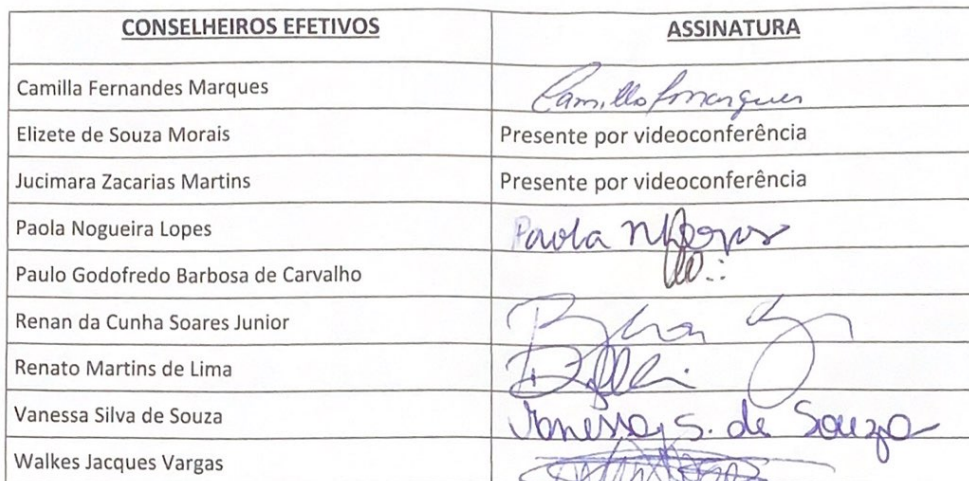 CONSELHEIROS EFETIVOS ASSINATURA
Camilla Fernandes Marques
Elizete de Souza Morais Presente por videoconferência
Jucimara Zacarias Martins Presente por videoconferência
Paola Nogueira Lopes Paola
Paulo Godofredo Barbosa de Carvalho
Renan da Cunha Soares Junior
Renato Martins de Lima
Vanessa Silva de Souza Vanessa S. de Souza
Walkes Jacques Vargas